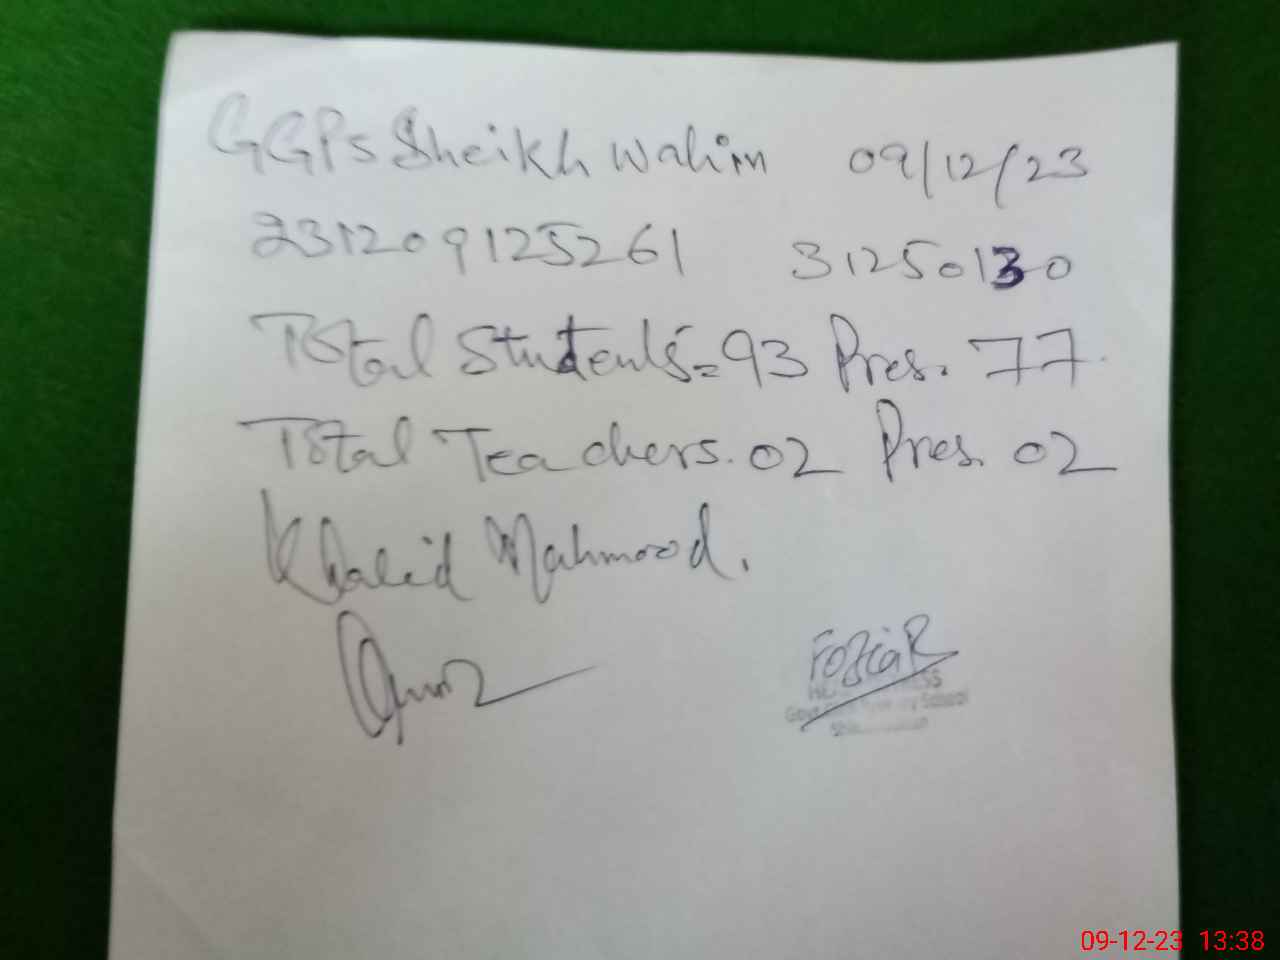 GGPS Sheikh Wahin 09/12/23
231209125261 31250130
Total Students = 93 Pres. 77
Total Teachers. 02 Pres. 02
Khalid Mahmood.
Fozia R
School
09-12-23 13:38